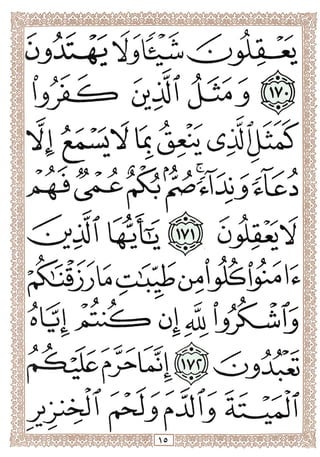 يَعْقِلُونَ شَيْـًٔا وَلَا يَهْتَدُونَ
﴿١٧٠﴾ وَمَثَلُ ٱلَّذِينَ كَفَرُوا۟
كَمَثَلِ ٱلَّذِى يَنْعِقُ بِمَا لَا يَسْمَعُ إِلَّا
دُعَآءً وَنِدَآءً ۚ صُمٌّۢ بُكْمٌ عُمْىٌ فَهُمْ
لَا يَعْقِلُونَ ﴿١٧١﴾ يَـٰٓأَيُّهَا ٱلَّذِينَ
ءَامَنُوا۟ كُلُوا۟ مِن طَيِّبَـٰتِ مَا رَزَقْنَـٰكُمْ
وَٱشْكُرُوا۟ لِلَّهِ إِن كُنتُمْ إِيَّاهُ
تَعْبُدُونَ ﴿١٧٢﴾ إِنَّمَا حَرَّمَ عَلَيْكُمُ
ٱلْمَيْتَةَ وَٱلدَّمَ وَلَحْمَ ٱلْخِنزِيرِ
١٥